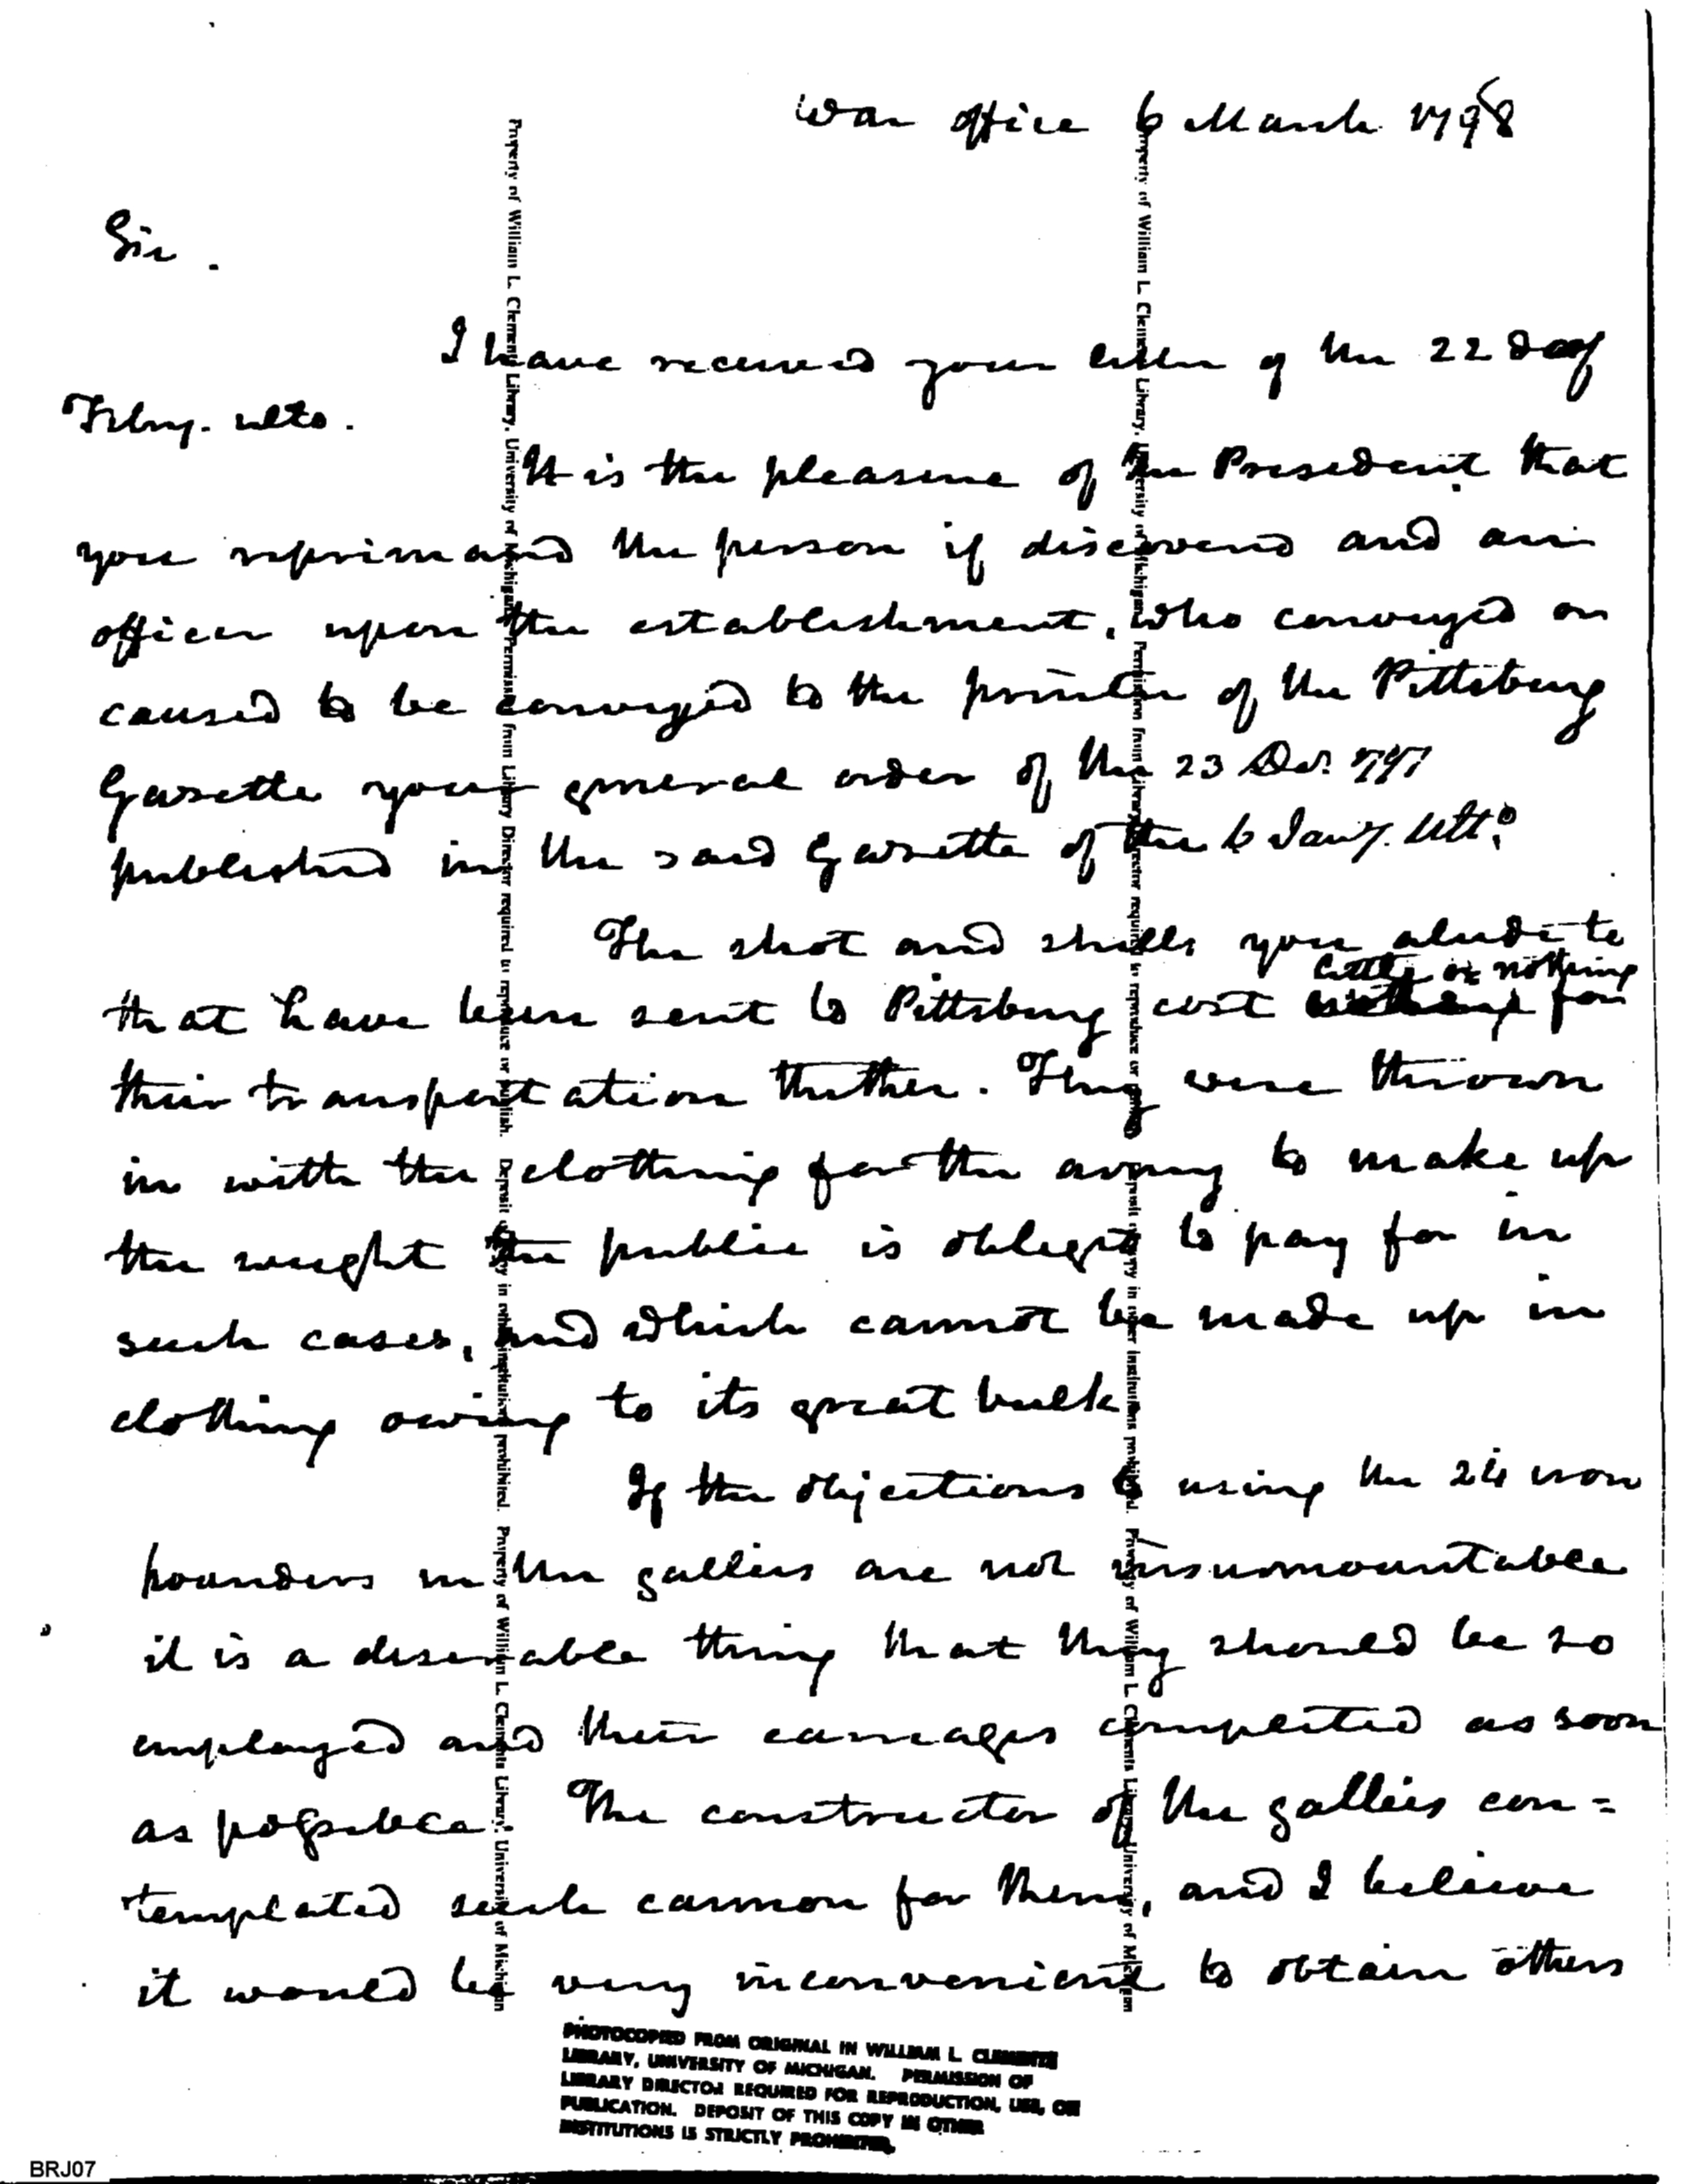 War office 6 March 1798
Sir.
I have received your letter of the 22 day
Feby. ulto.
It is the pleasure of the President that
you reprimand the person if discovered and an
officer upon the establishment, who conveyed or
caused to be conveyed to the printer of the Pittsburg
Gazette your general order of the 23 Der. 797
published in the said Gazette of the 6 Jany. Ulto.
The shot and shells you alude to
little or nothing
that have been sent to Pittsburg cost nothing for
their transportation thither. They were thrown
in with the clothing for the army to make up
the weight the public is obliged to pay for in
such cases, and which cannot be made up in
clothing owing to its great bulk
If the objections to using the 24 iron
pounders in the gallies are not insurmountable
it is a desireable thing that they should be so
employed and their carriages completed as soon
as possible. The constructor of the gallies con=
templated such cannon for them, and I believe
it would be very inconvenient to obtain others
Property of William L. Clements Library, University of Michigan. Permission from Library Director required to reproduce or publish. Deposit copy in other institutions prohibited. Property of William L. Clements Library, University of Michigan
Property of William L. Clements Library, University of Michigan. Permission from Library Director required to reproduce or publish. Deposit copy in other institutions prohibited. Property of William L. Clements Library, University of Michigan
PHOTOCOPIED FROM ORIGINAL IN WILLIAM L. CLEMENTS
LIBRARY, UNIVERSITY OF MICHIGAN. PERMISSION OF
LIBRARY DIRECTOR REQUIRED FOR REPRODUCTION, USE, OR
PUBLICATION. DEPOSIT OF THIS COPY IN OTHER
INSTITUTIONS IS STRICTLY PROHIBITED.
BRJ07